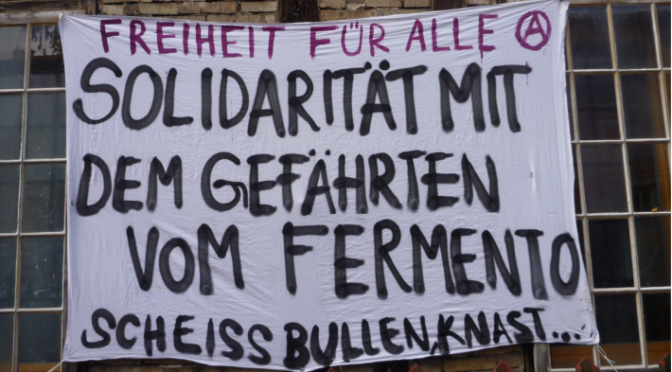 FREIHEIT FÜR ALLE Ⓐ
SOLIDARITÄT MIT
DEM GEFÄHRTEN
VOM FERMENTO
SCHEISS BULLEN, KNAST...